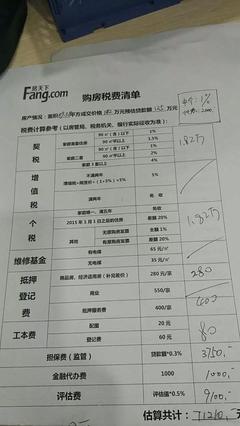 房天下
Fang.com
购房税费清单
中介:1%
房产情况:面积 方成交价格 182 万元预估贷款额 125 万元
税费计算参考(以房管局、税务机关、银行实际征收为准):
契税
家庭首套住房
90㎡(含)以下
1%
90㎡以上
1.5%
1.82万
家庭二套
90㎡(含)以下
1%
90㎡以上
2%
家庭3套以上
4%
增值税
不满两年
满两年
免收
个税
家庭唯一、满五年
免收
2015年1月1日之后的住房
差额20%
1.82万
其他
无原购房发票
全额1%
有原购房发票
差额20%
维修基金
有电梯
65元/㎡
无电梯
35元/㎡
抵押登记费
商品房、经济适用房(补完差价)
280元/宗
280
商业
550/宗
抵押服务费
400/宗
400
工本费
配图
20元
登记费
60元
80
担保费(监管)
贷款额*0.3%
3750.-
金融代办费
1000
1000.-
评估费
评估值*0.5%
9100.-
估算共计: